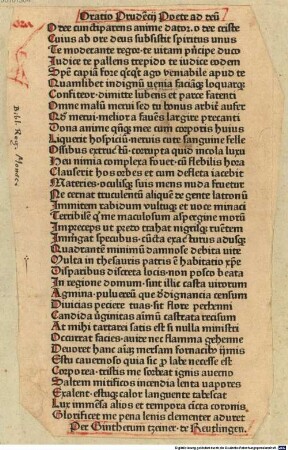 Oratio Prudẽcij Poete ad deũ
O dee cunctiparens anime dator. o dee criste
Cuius ab ore deus subsistit spiritus unus
Te moderante regor. te vitam prīcipe duco
Iudice te pallens trepido te iudice eodem
Spē capiā fore qcqͥ ago veniabile apud te
Quamlibet indignū uenia faciāqꝫ loquarqꝫ
Confiteor. dimitte lubens et parce fatenti
Omne malū merui sed tu bonus arbiter aufer
Qđ merui. meliora faueris largire precanti
Dona anime quãqꝫ mee cum corporis huius
Liquerit hospiciū neruis cute sanguine felle
Ossibus extructū. corrupta quid incola luxu
Heu nimia complexa fouet. cū flebilis hora
Clauserit hos orbes et cum defleta iacebit
Materies. oculisqꝫ suis mens nuda fruetur
Ne cernat truculentū aliquē de gente latronū
Immitem rabidum vultuqꝫ et voce minacē
Terribilē qͥ me maculosum aspergine morum
In preceps ut predo trahat nigrisqꝫ ruentem
Inmergat specubus. cūcta exacturus adusqꝫ
Quadrantē minimū damnose debita vite
Multa in thesauris patris ē habitatio xp̄e
Disparibus discreta locis. non posco beata
In regione domum. sint illic casta uirorum
Agmina. puluereū que dedignancia censum
Diuicias peciere tuas. sit flore perhenni
Candida uirginitas animū castrata recisum
At mihi tartarei satis est si nulla ministri
Occurrat facies. auide nec flamma gehenne
Deuoret hanc aīaꝫ mersam fornacibꝫ ijmis
Esto cauernoso quia sic pro labe necesse est
Corporea. tristis me sorbeat ignis auerno
Saltem mitificos incendia lenta vapores
Exalent. estuqꝫ calor languente tabescat
Lux immensa alios et tempora cincta coronis
Glorificet me pena leuis clementer adurat
Per Gintherum tzeiner de Reutlingen.
Bibl. Reg. Monac.